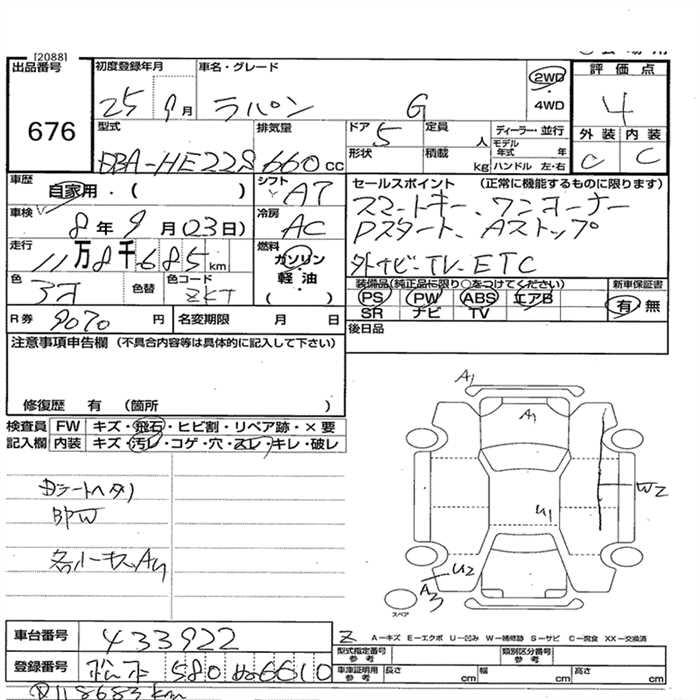 [2088]
出品番号
676
初度登録年月
25 9月
車名・グレード
ラパン G
2WD
・
4WD
評価点
4
外装 内装
C C
型式
DBA-HE22S
排気量
660cc
ドア 5
定員 人
形状
積載 kg
ディーラー・並行
モデル年式 年
ハンドル 左・右
車歴
自家用・( )
シフト
AT
セールスポイント (正常に機能するものに限ります)
スマートキー、ワンオーナー
Pスタート、Aストップ
外ナビ・TV・ETC
車検
8年 9月 (03日)
冷房
AC
走行
11万8千685km
燃料
ガソリン
・
軽油
( )
色
色替
色コード
ZKT
装備品(純正品に限り○をつけてください)
PS PW ABS エアB
SR ナビ TV
新車保証書
有 無
R券 9070円
名変期限 月 日
後日品
注意事項申告欄 (不具合内容等は具体的に記入して下さい)
修復歴 有 (箇所 )
検査員 FW キズ・飛石・ヒビ割・リペア跡・×要
記入欄 内装 キズ・汚レ・コゲ・穴・スレ・キレ・破レ
A1
A1
W2
U1
U2
A3
スペア
車台番号
433922
登録番号
松本 580 ぬ6610
A−キズ E−エクボ U−凹み W−補修跡 S−サビ C−腐食 XX−交換済
型式指定番号
参考
類別区分番号
参考
車庫証明用
参考
長さ cm 幅 cm 高さ cm
118683km